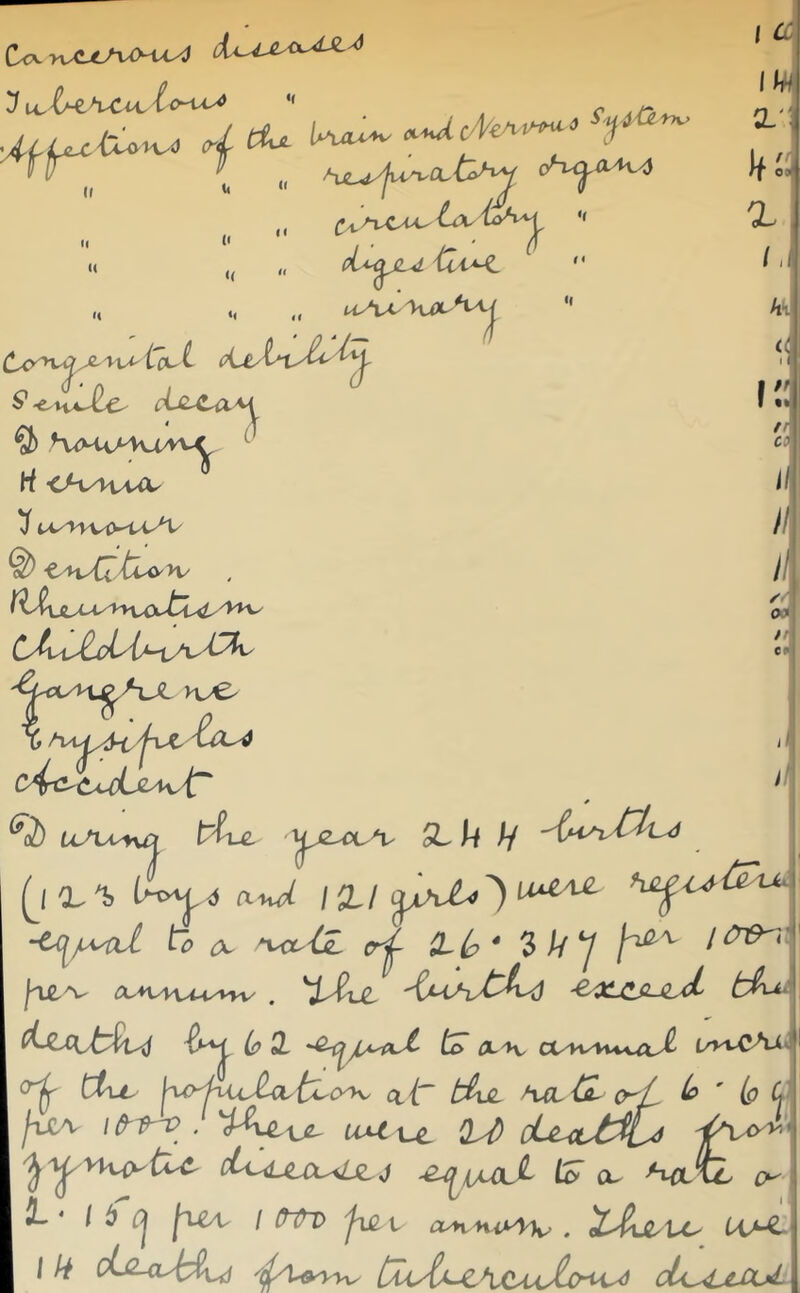 Cancerous diseases
Tuberculous "
Affections of the brain and Nervous System
" " " respiratory organs
" " " circulatory "
" " " digestive "
" " " urinary "
Congenital debility
Senile decay
Drowning
Hernia
Tumour
Dentition
Rheumatism
Childbirth
Gangrene
Erysipelas
Accident
During the year 244 births
(123 boys and 121 girls) were
equal to a rate of 26.347 per
per annum. The births exceed
deaths by 62 equal to an annual
of the population at the rate of
per 1000. There were 20 deaths
zymotic diseases equal to a rate
2.159 per 1000 per annum. There
14 deaths from tuberculous